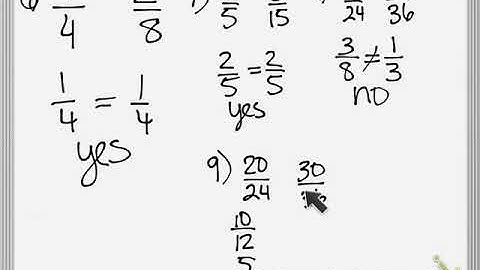 4 8 5 15 24 36
1/4 = 1/4
yes
2/5 = 2/5
yes
3/8 ≠ 1/3
no
9) 20/24 30
10/12
5